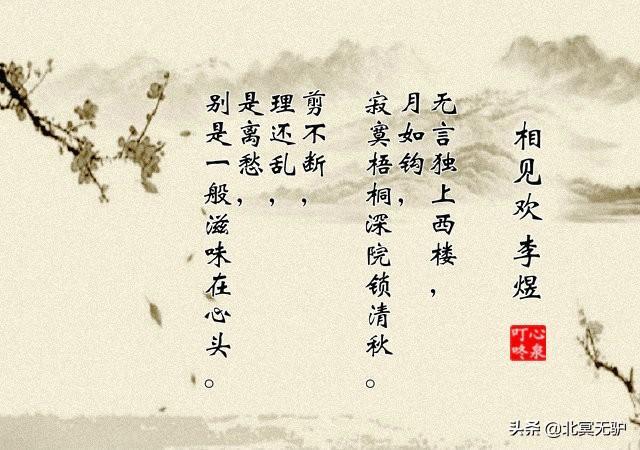 相见欢 李煜
无言独上西楼，
月如钩，
寂寞梧桐深院锁清秋。
剪不断，
理还乱，
是离愁，
别是一般滋味在心头。
心泉
叮咚
头条 @北冥无驴